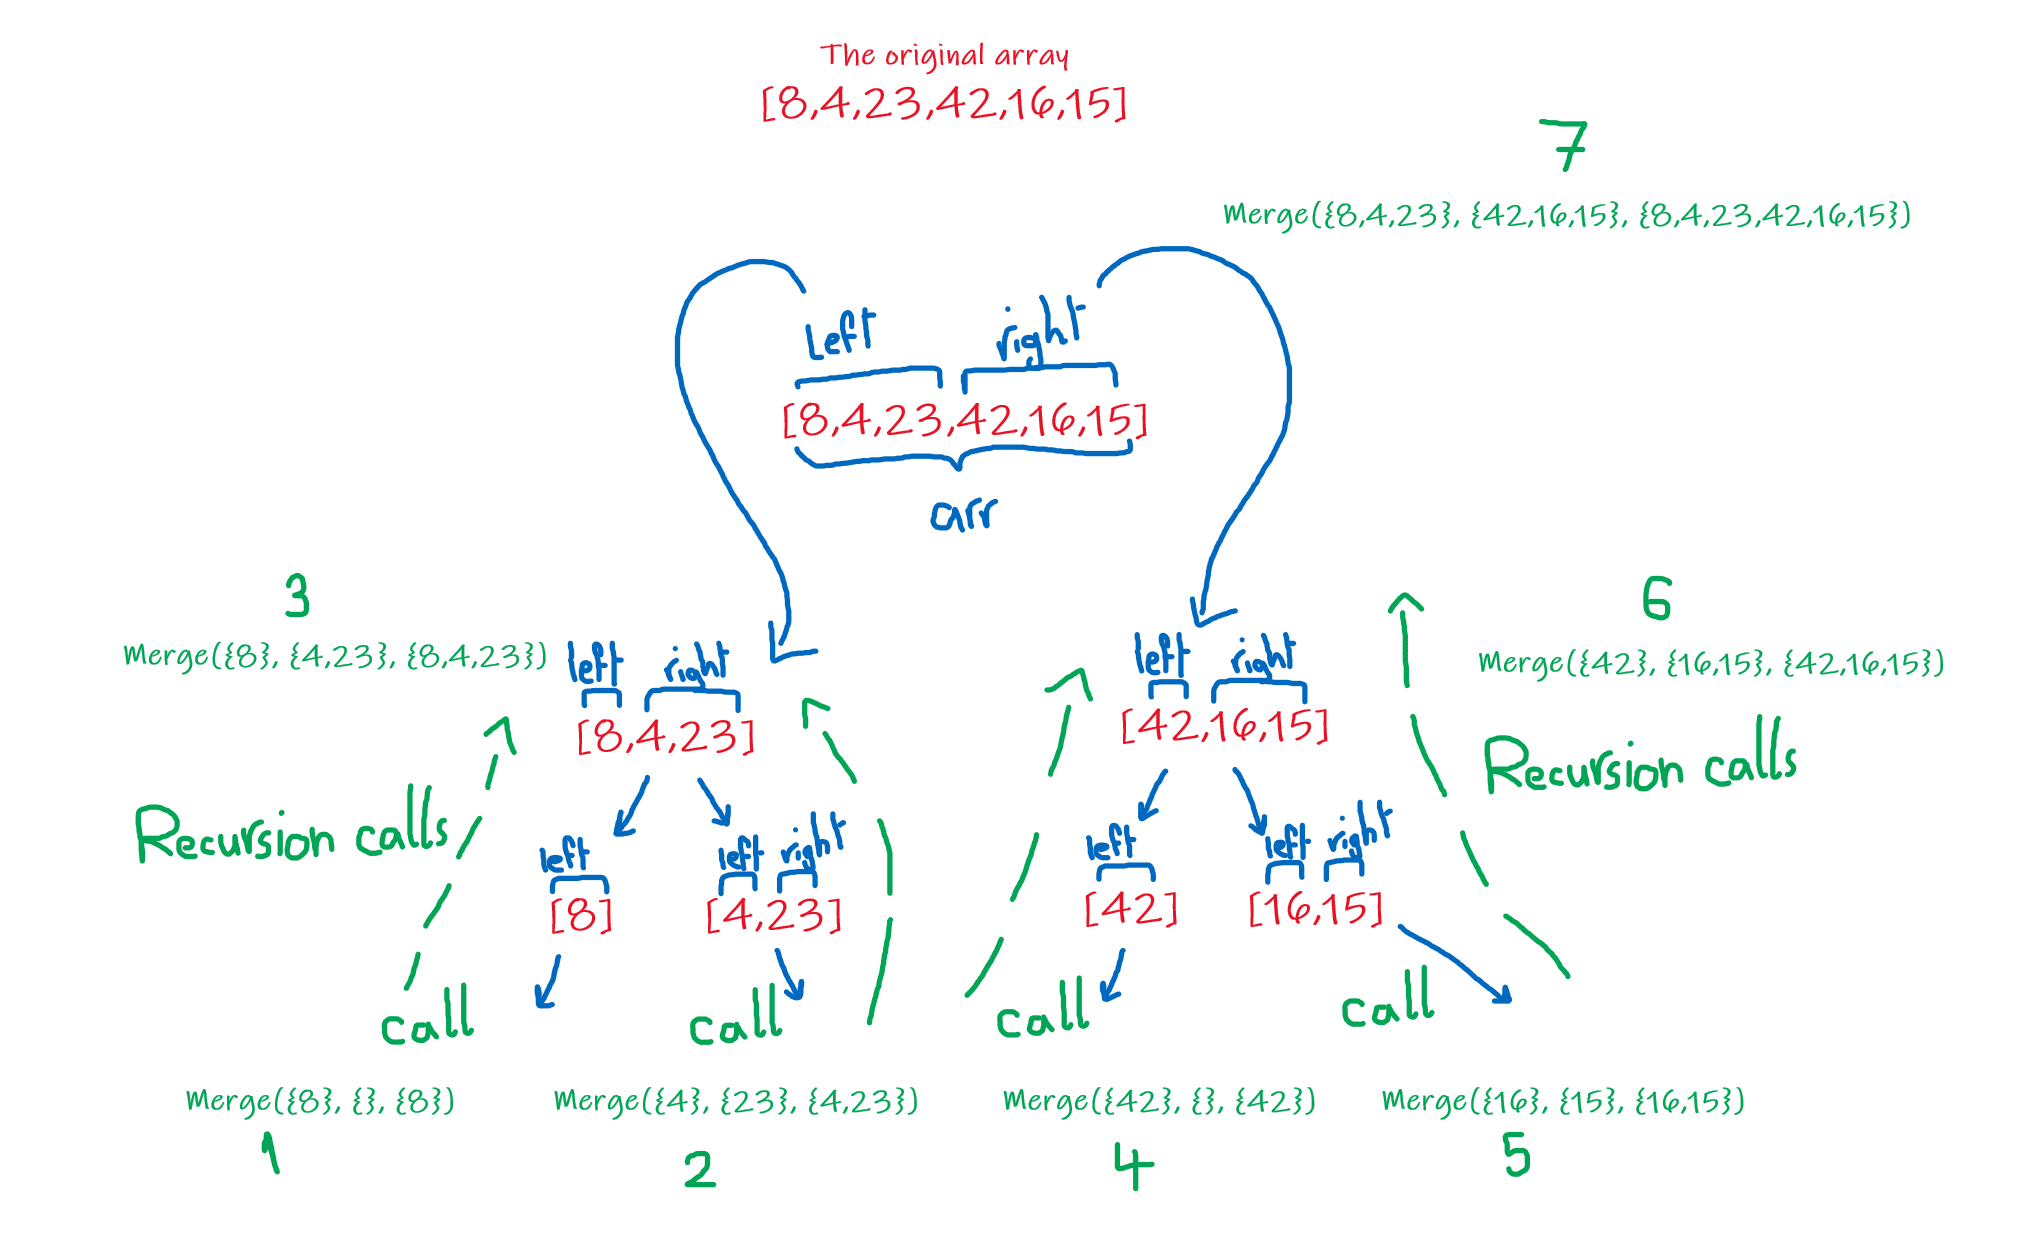 The original array
[8,4,23,42,16,15]
7
Merge({8,4,23}, {42,16,15}, {8,4,23,42,16,15})
left right
[8,4,23,42,16,15]
arr
3
Merge({8}, {4,23}, {8,4,23})
left right
[8,4,23]
left right
[42,16,15]
6
Merge({42}, {16,15}, {42,16,15})
Recursion calls
Recursion calls
left
[8]
left right
[4,23]
left
[42]
left right
[16,15]
call
call
call
call
Merge({8}, {}, {8})
1
Merge({4}, {23}, {4,23})
2
Merge({42}, {}, {42})
4
Merge({16}, {15}, {16,15})
5